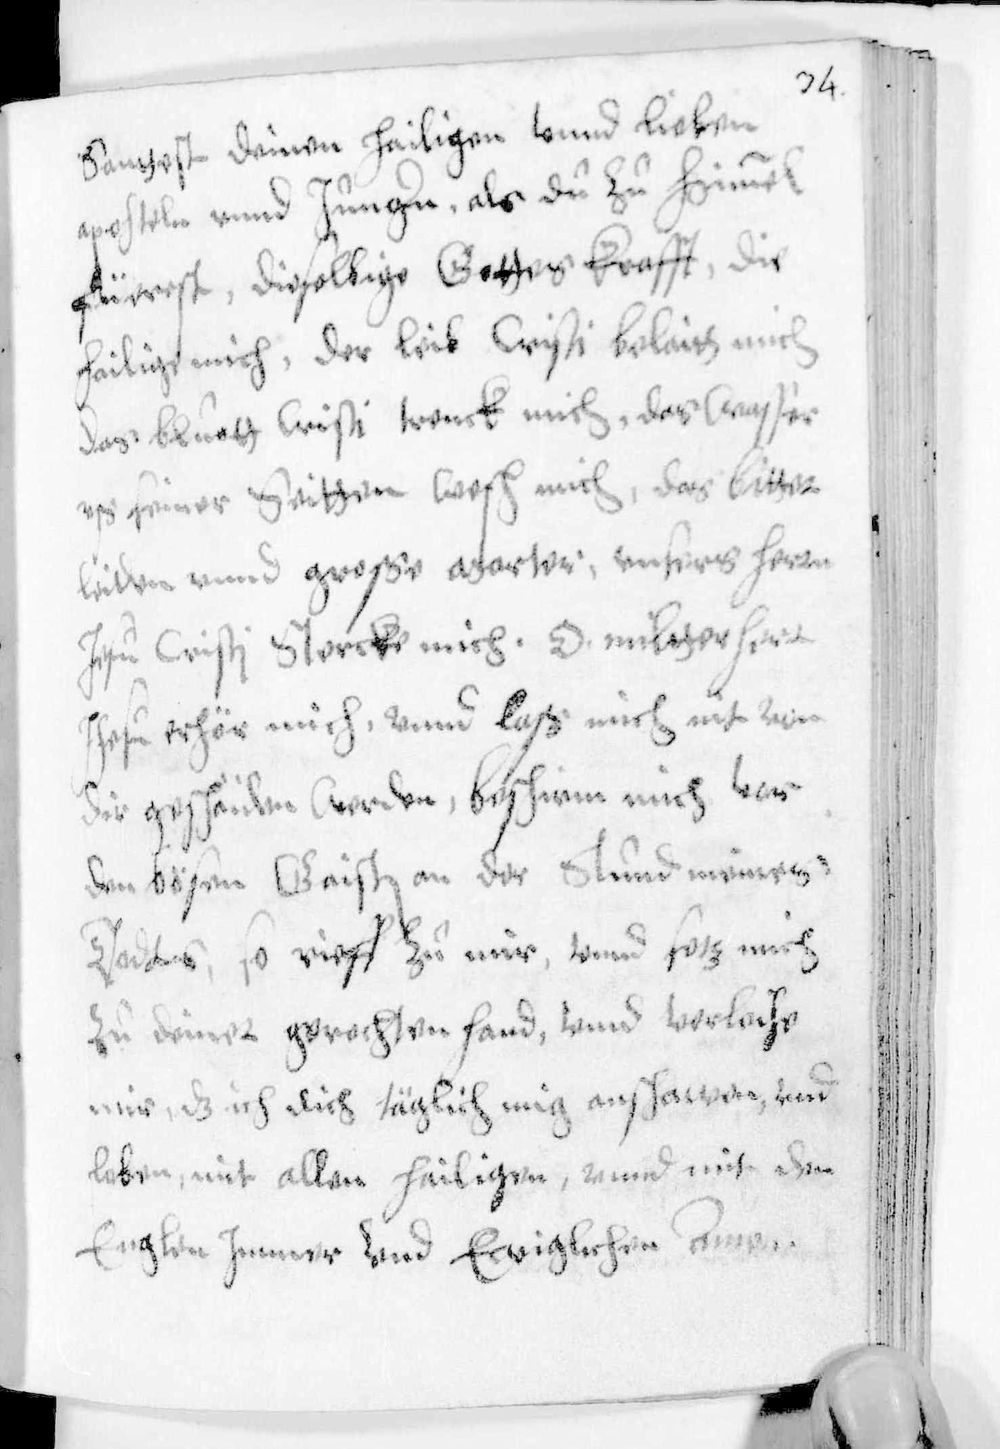 34.
Santest deinen hailigen vnnd lieben
aposteln vnnd Jungrn, als du zu Himel
füerest, dieselbige Gottes Krafft, die
hailige mich, der leib Cristi belaith mich
das blueth Cristi trenck mich, das Wasser
vß seiner Seitten Wesch mich, das bitter
leiden vnnd grosse marter, vnsers hern
Jesu Cristj Stercke mich. O. milter herr
Jhesu erhör mich, vnnd laß mich nit von
dir geschaiden werden, beschirm mich vor
den bösen Gaist, an der Stund meines
Todtes, so rieff zu mir, vnnd setz mich
zu deiner gerechten hand, vnnd verleihe
mir, dz ich dich täglich mig anschawen, vnd
loben, mit allen hailigen, vnnd mit den
Englen Jmmer vnd Ewiglichen Amen